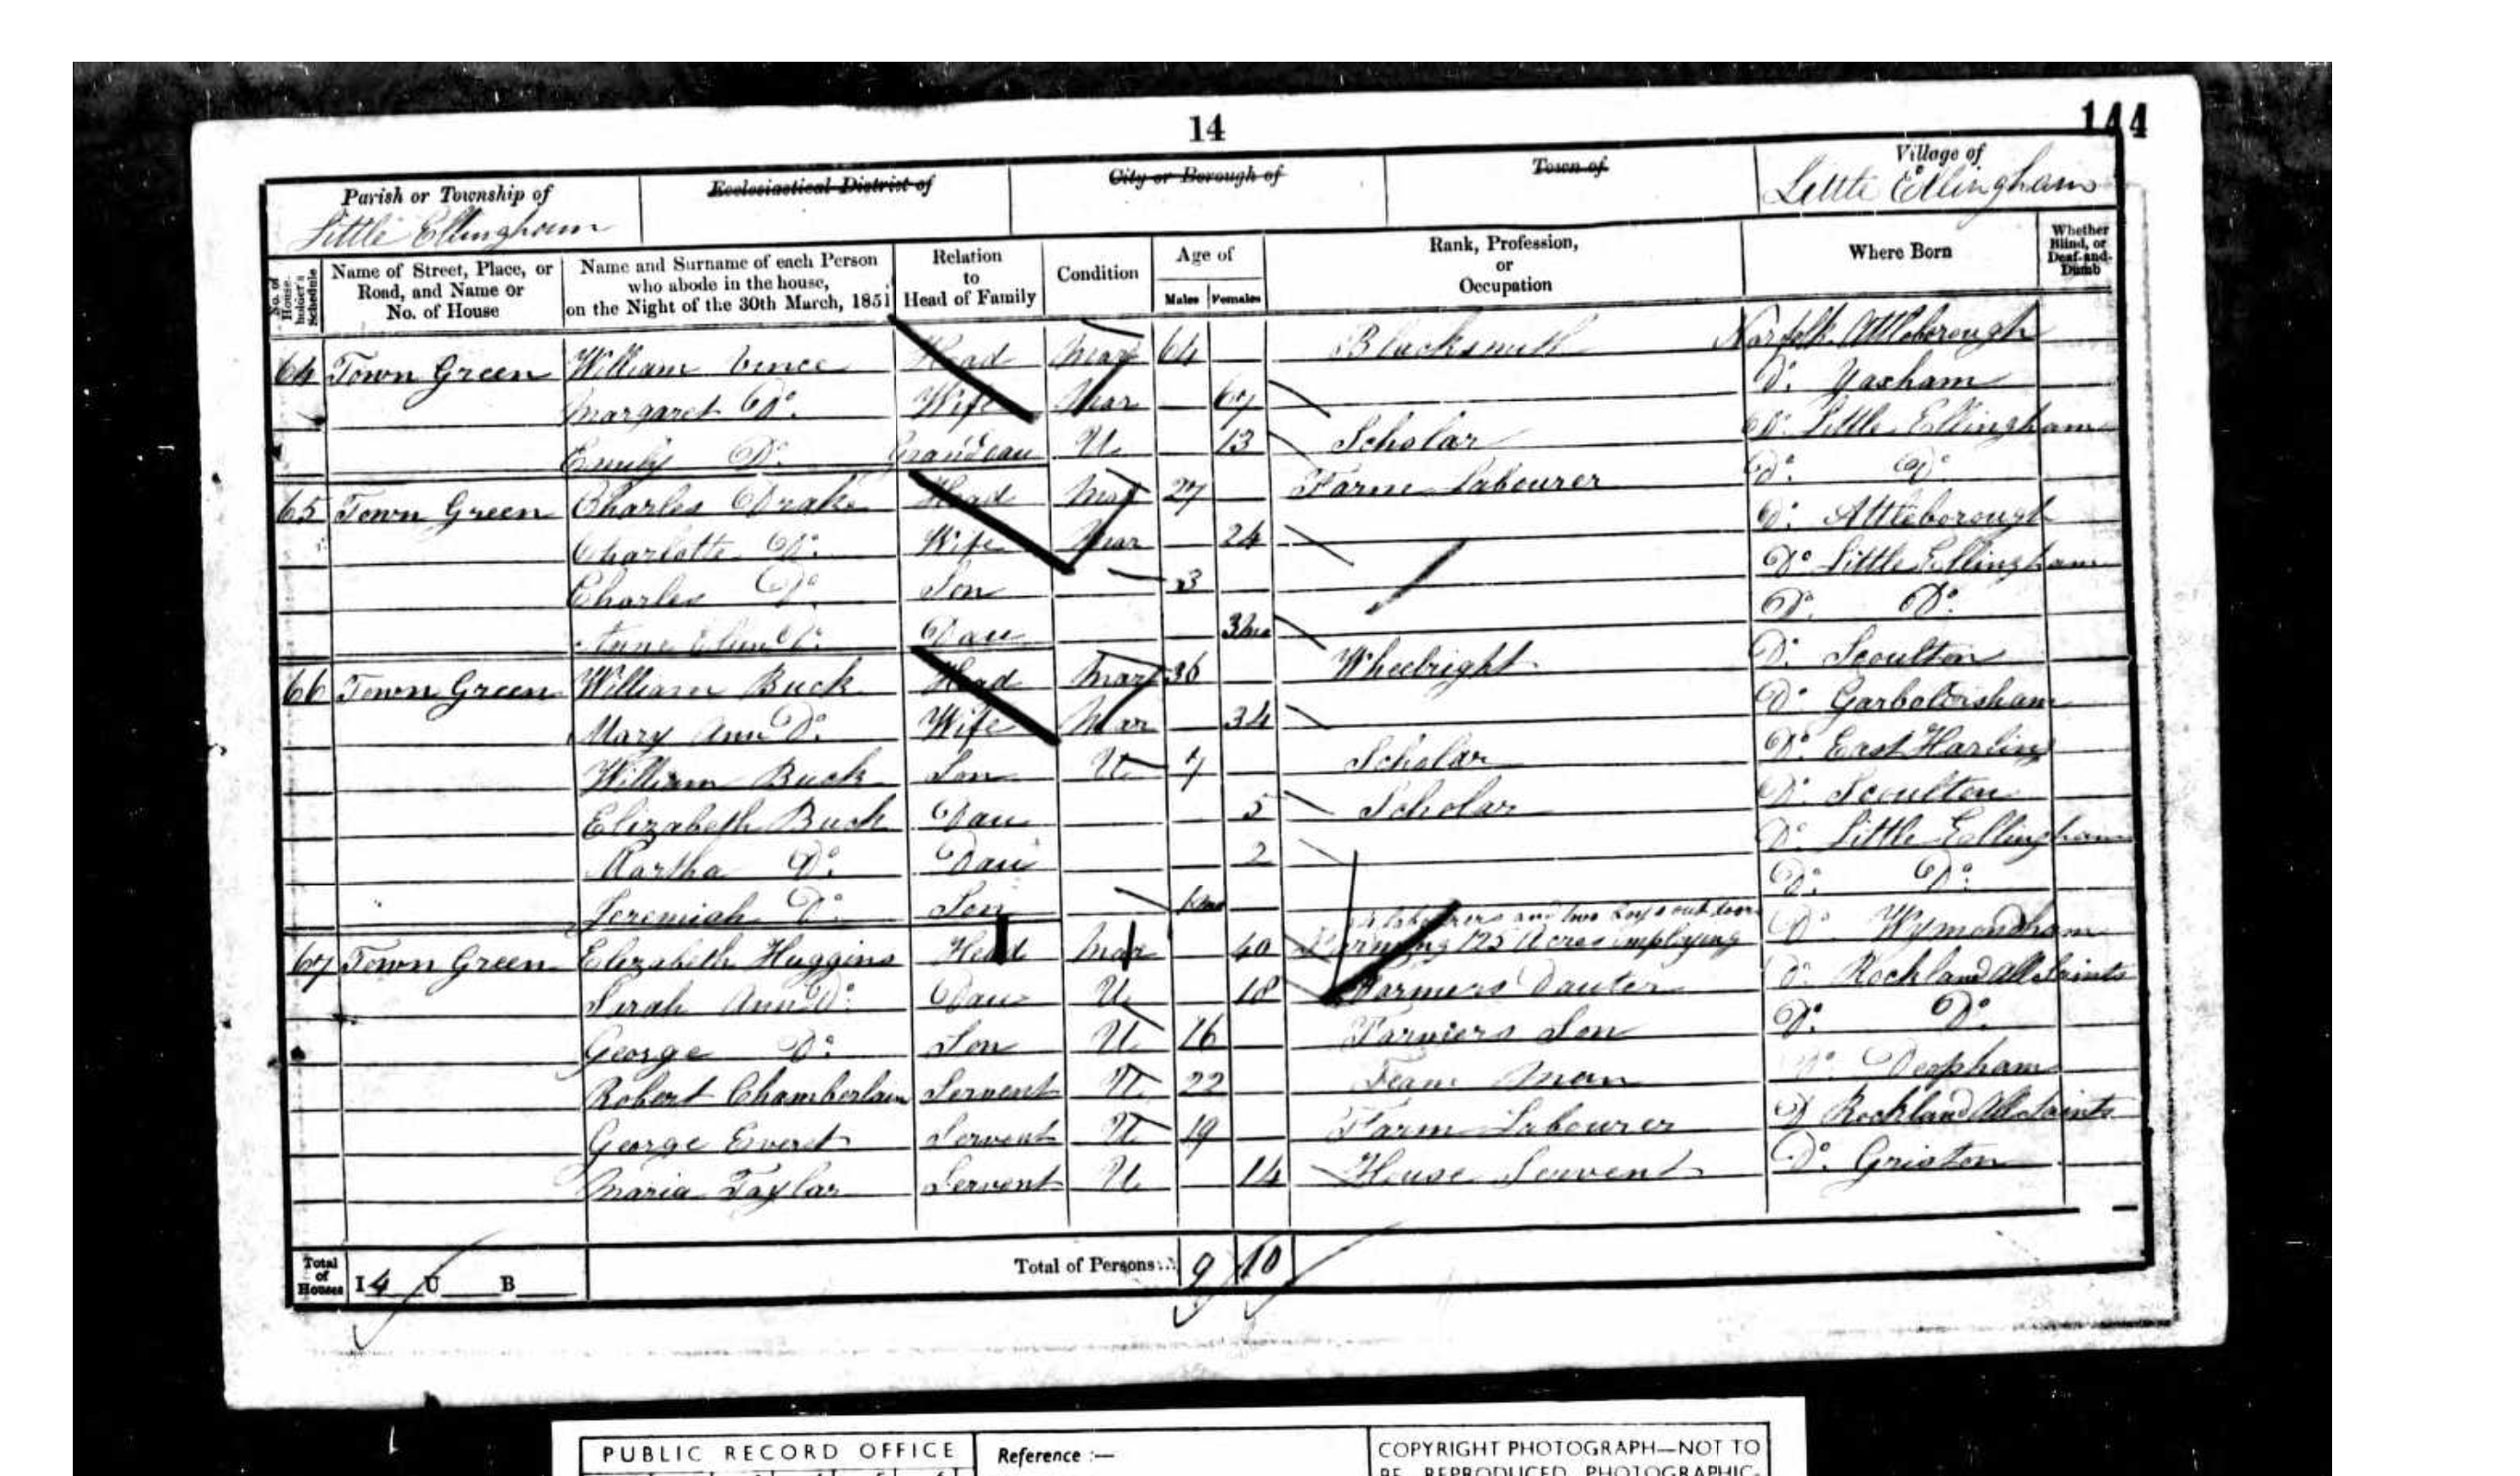 14
144
Parish or Township of
Little Ellingham
Ecclesiastical District of
City or Borough of
Town of
Village of
Little Ellingham
No. of House-holder's Schedule
Name of Street, Place, or Road, and Name or No. of House
Name and Surname of each Person who abode in the house, on the Night of the 30th March, 1851
Relation to Head of Family
Condition
Age of
Males Females
Rank, Profession, or Occupation
Where Born
Whether Blind, or Deaf-and-Dumb
64 Town Green William Vince Head Mar 64 Blacksmith Norfolk Attleborough
Margaret Do. Wife Mar 67 Do. Yaxham
Emily Do. Grandau U 13 Scholar Do. Little Ellingham
65 Town Green Charles Drake Head Mar 27 Farm Labourer Do. Do.
Charlotte Do. Wife Mar 24 Do. Attleborough
Charles Do. Son 3 Do. Little Ellingham
Anne Do. Dau 3mo Do. Do.
66 Town Green William Buck Head Mar 36 Wheelright Do. Scoulton
Mary Ann Do. Wife Mar 34 Do. Garboldisham
William Buck Son U 7 Scholar Do. East Harling
Elizabeth Buck Dau 5 Scholar Do. Scoulton
Martha Do. Dau 2 Do. Little Ellingham
Jeremiah Do. Son Do. Do.
labourers and two boys out door
67 Town Green Elizabeth Huggins Head Mar 40 Farming 125 Acres employing Do. Wymondham
Sarah Ann Do. Dau U 18 Farmers Dauter Do. Rockland All Saints
George Do. Son U 16 Farmers Son Do. Do.
Robert Chamberlain Servent U 22 Team Man Do. Deopham
George Everet Servent U 19 Farm Labourer Do Rockland All Saints
Maria Taylor Servent U 14 House Servent Do. Griston
Total of Houses I 4 U B Total of Persons... 9 10
PUBLIC RECORD OFFICE
Reference :—
COPYRIGHT PHOTOGRAPH—NOT TO
BE REPRODUCED PHOTOGRAPHIC-